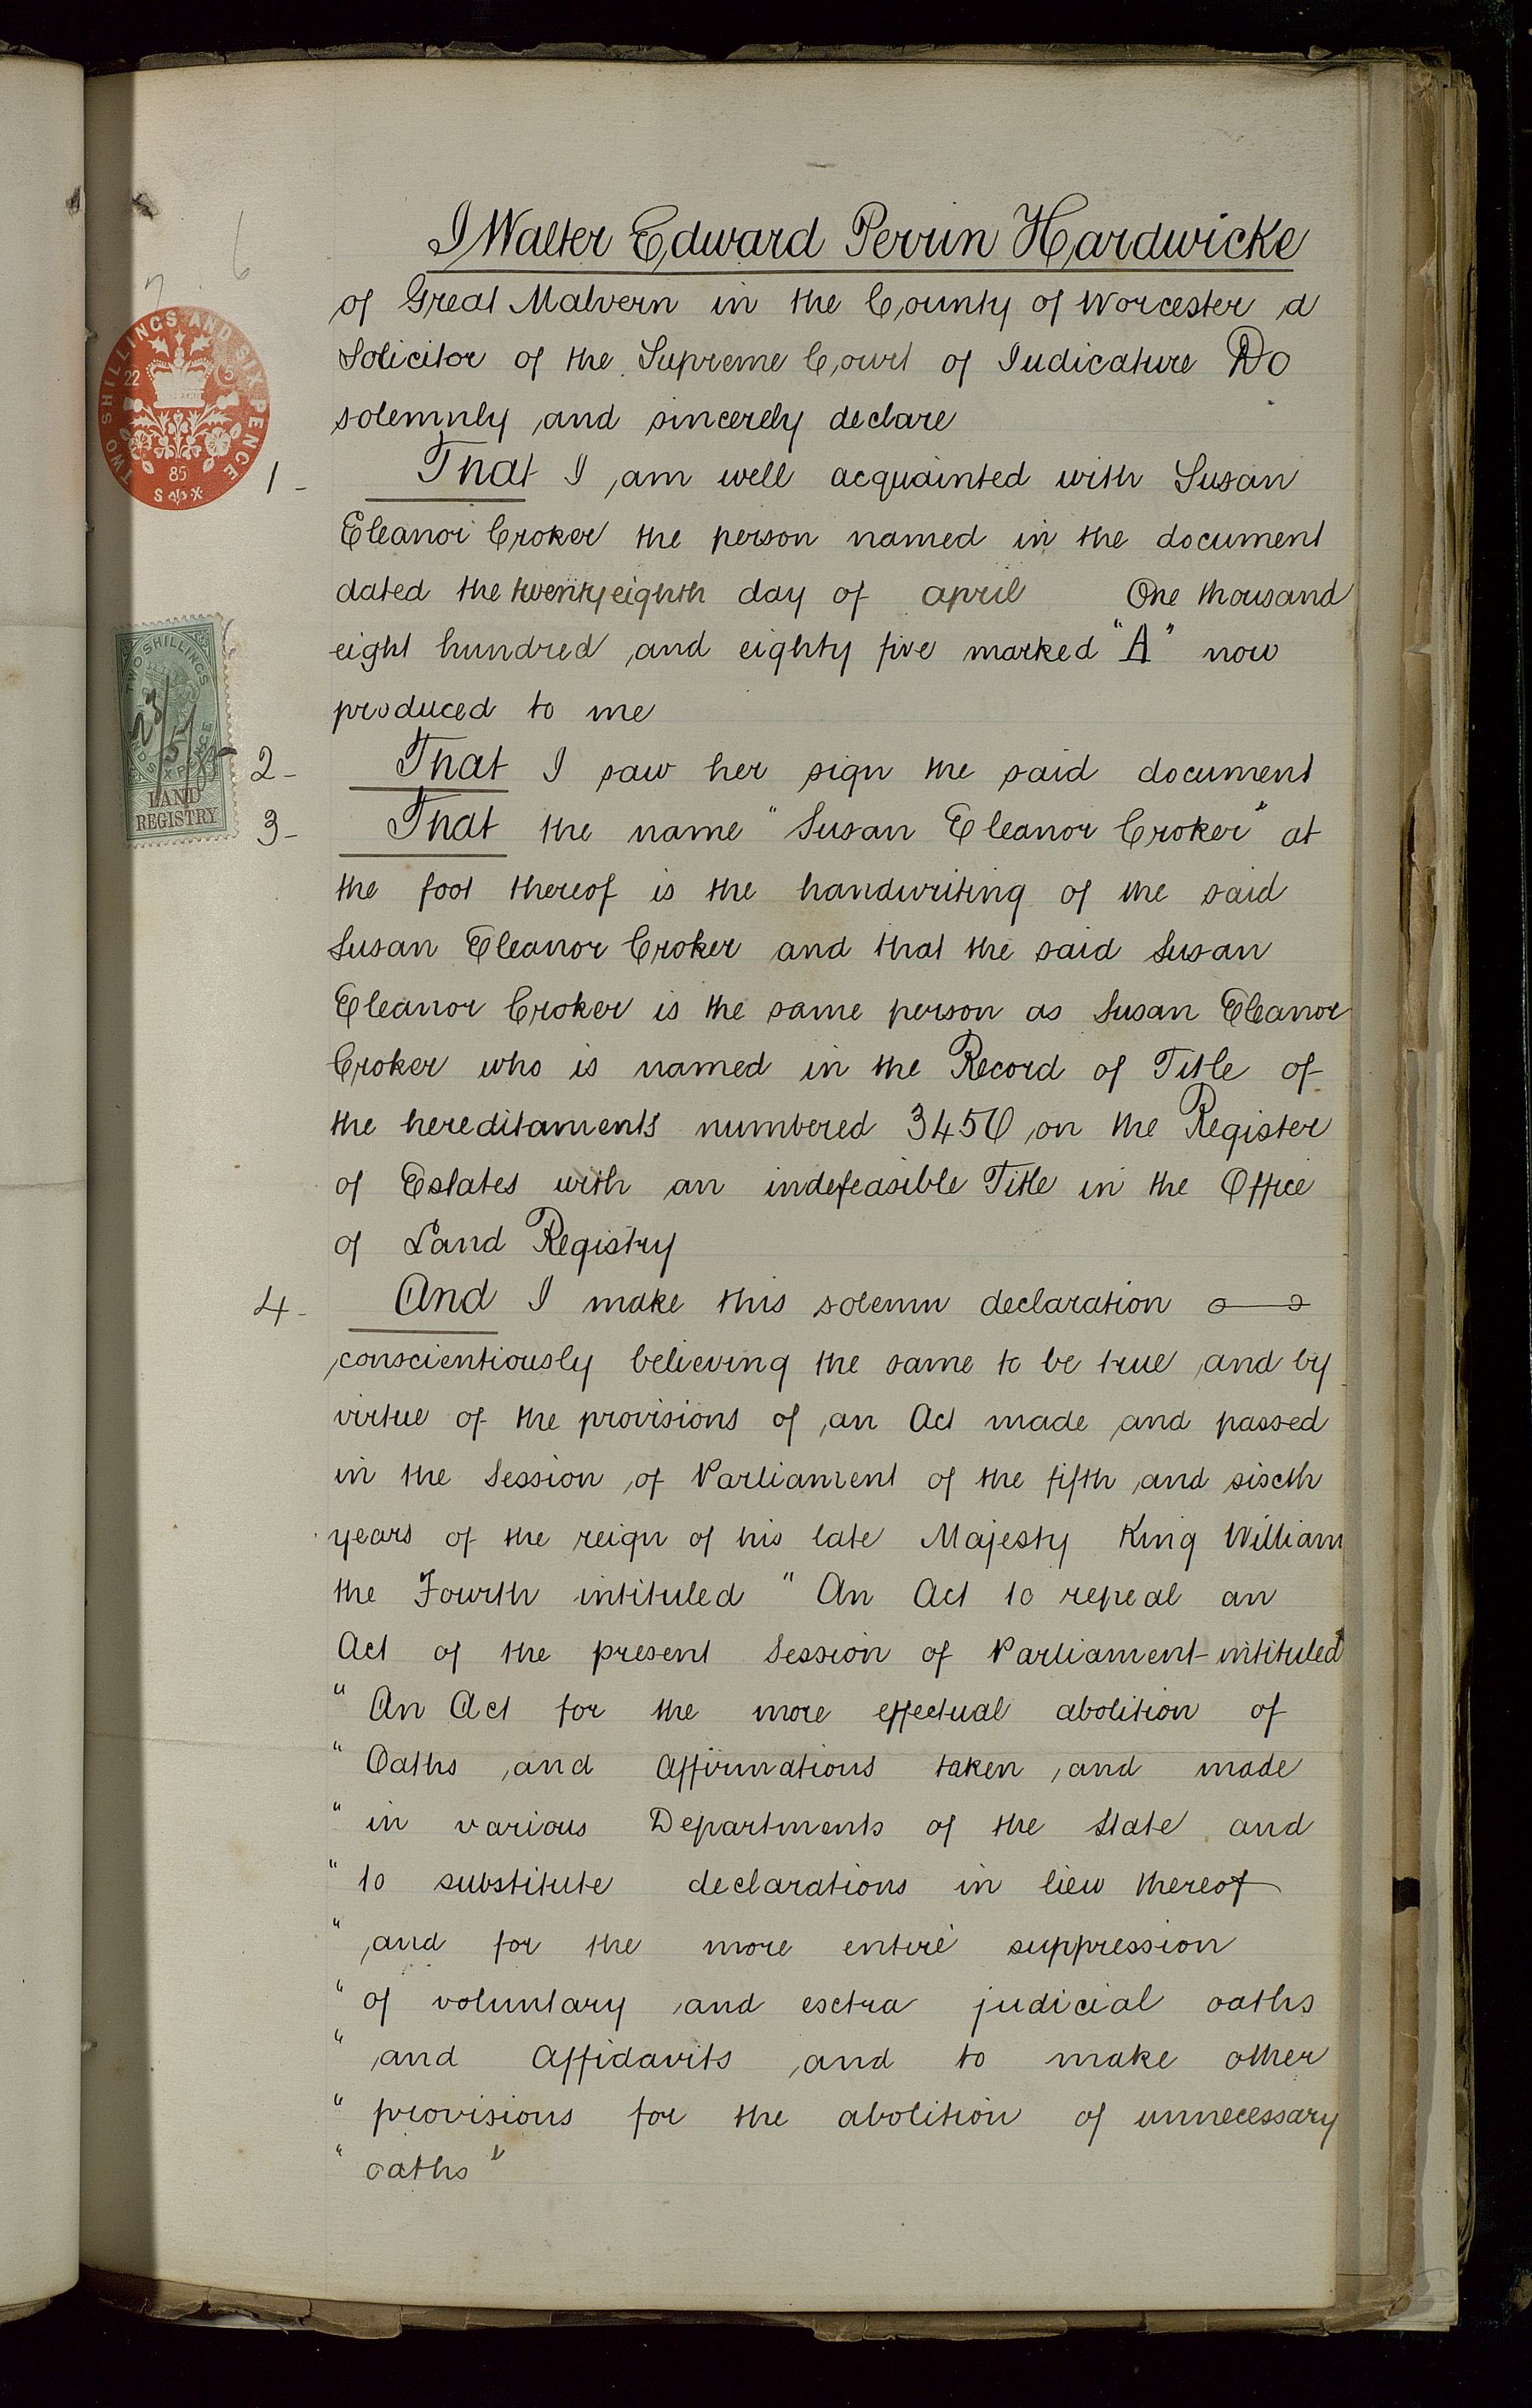 7 . 6
I Walter Edward Perrin Hardwicke
of Great Malvern in the County of Worcester a
Solicitor of the Supreme Court of Judicature Do
solemnly and sincerely declare
TWO SHILLINGS AND SIX PENCE
22 5
85
1 - That I am well acquainted with Susan
Eleanor Croker the person named in the document
dated the twenty eighth day of april One thousand
eight hundred and eighty five marked "A" now
produced to me
TWO SHILLINGS
AND SIX PENCE
LAND
REGISTRY
2 - That I saw her sign the said document
3 - That the name "Susan Eleanor Croker" at
the foot thereof is the handwriting of the said
Susan Eleanor Croker and that the said Susan
Eleanor Croker is the same person as Susan Eleanor
Croker who is named in the Record of Title of
the hereditaments numbered 3450 on the Register
of Estates with an indefeasible Title in the Office
of Land Registry
4 - And I make this solemn declaration
conscientiously believing the same to be true and by
virtue of the provisions of an Act made and passed
in the Session of Parliament of the fifth and sixth
years of the reign of his late Majesty King William
the Fourth intituled " An Act to repeal an
Act of the present Session of Parliament intituled
" An Act for the more effectual abolition of
" Oaths and Affirmations taken and made
" in various Departments of the State and
" to substitute declarations in lieu thereof
" and for the more entire suppression
" of voluntary and extra judicial oaths
" and Affidavits and to make other
" provisions for the abolition of unnecessary
" oaths"